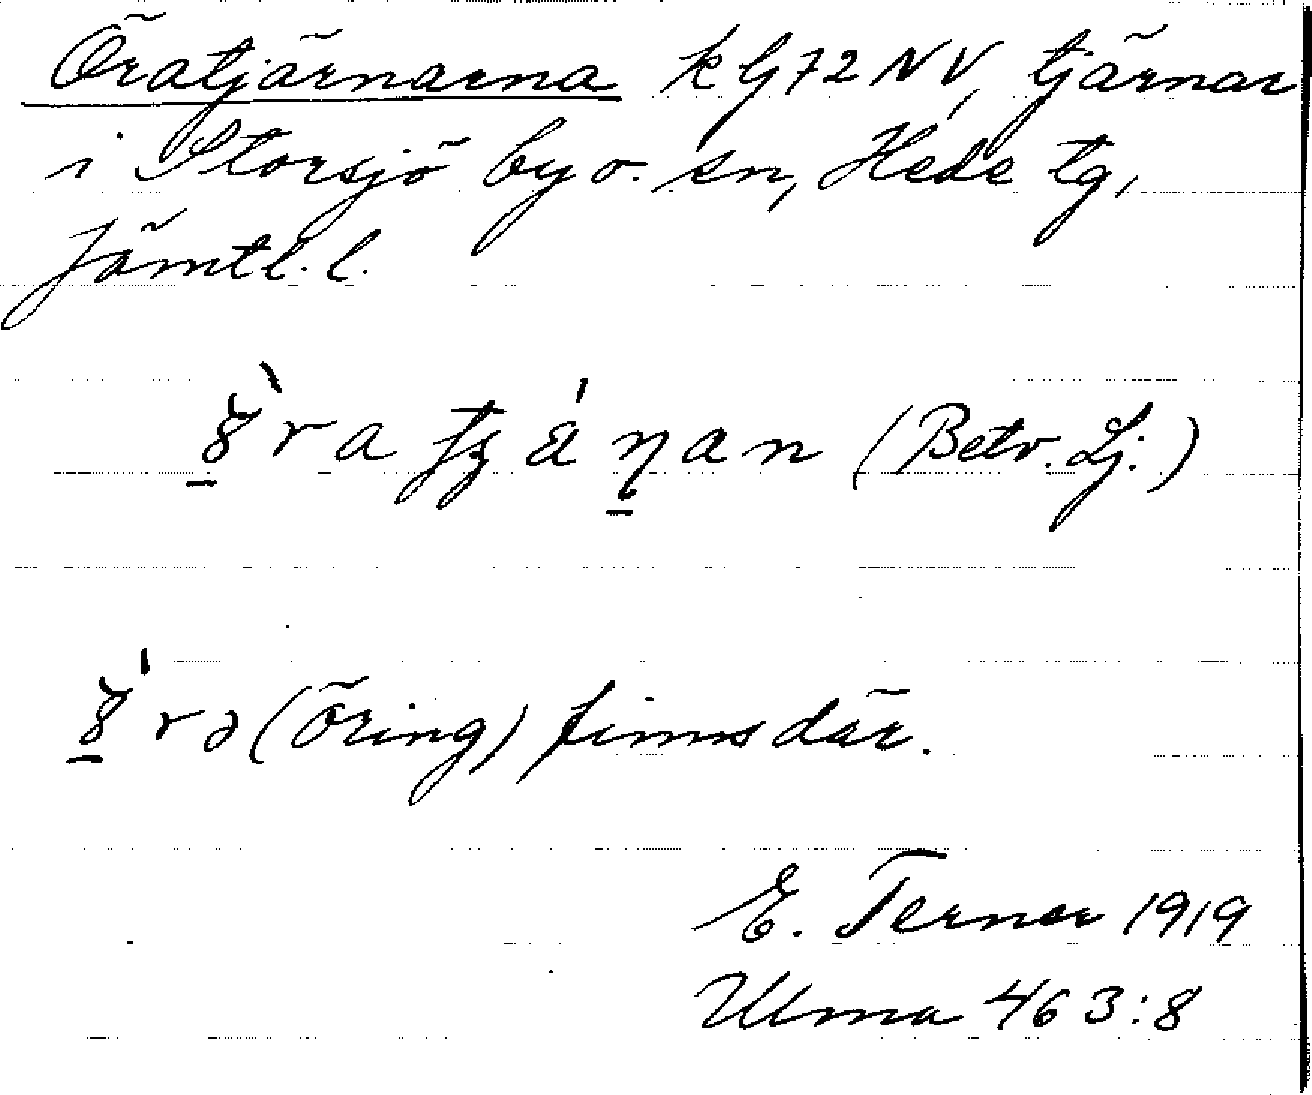 Öratjärnarna k G72NV, tjärnar
i Storsjö by o. sn, Hede tg,
Jämtl. l.
(Betv. Lj.)
(öring) finns där.
E. Ternер 1919
Ulma 463:8